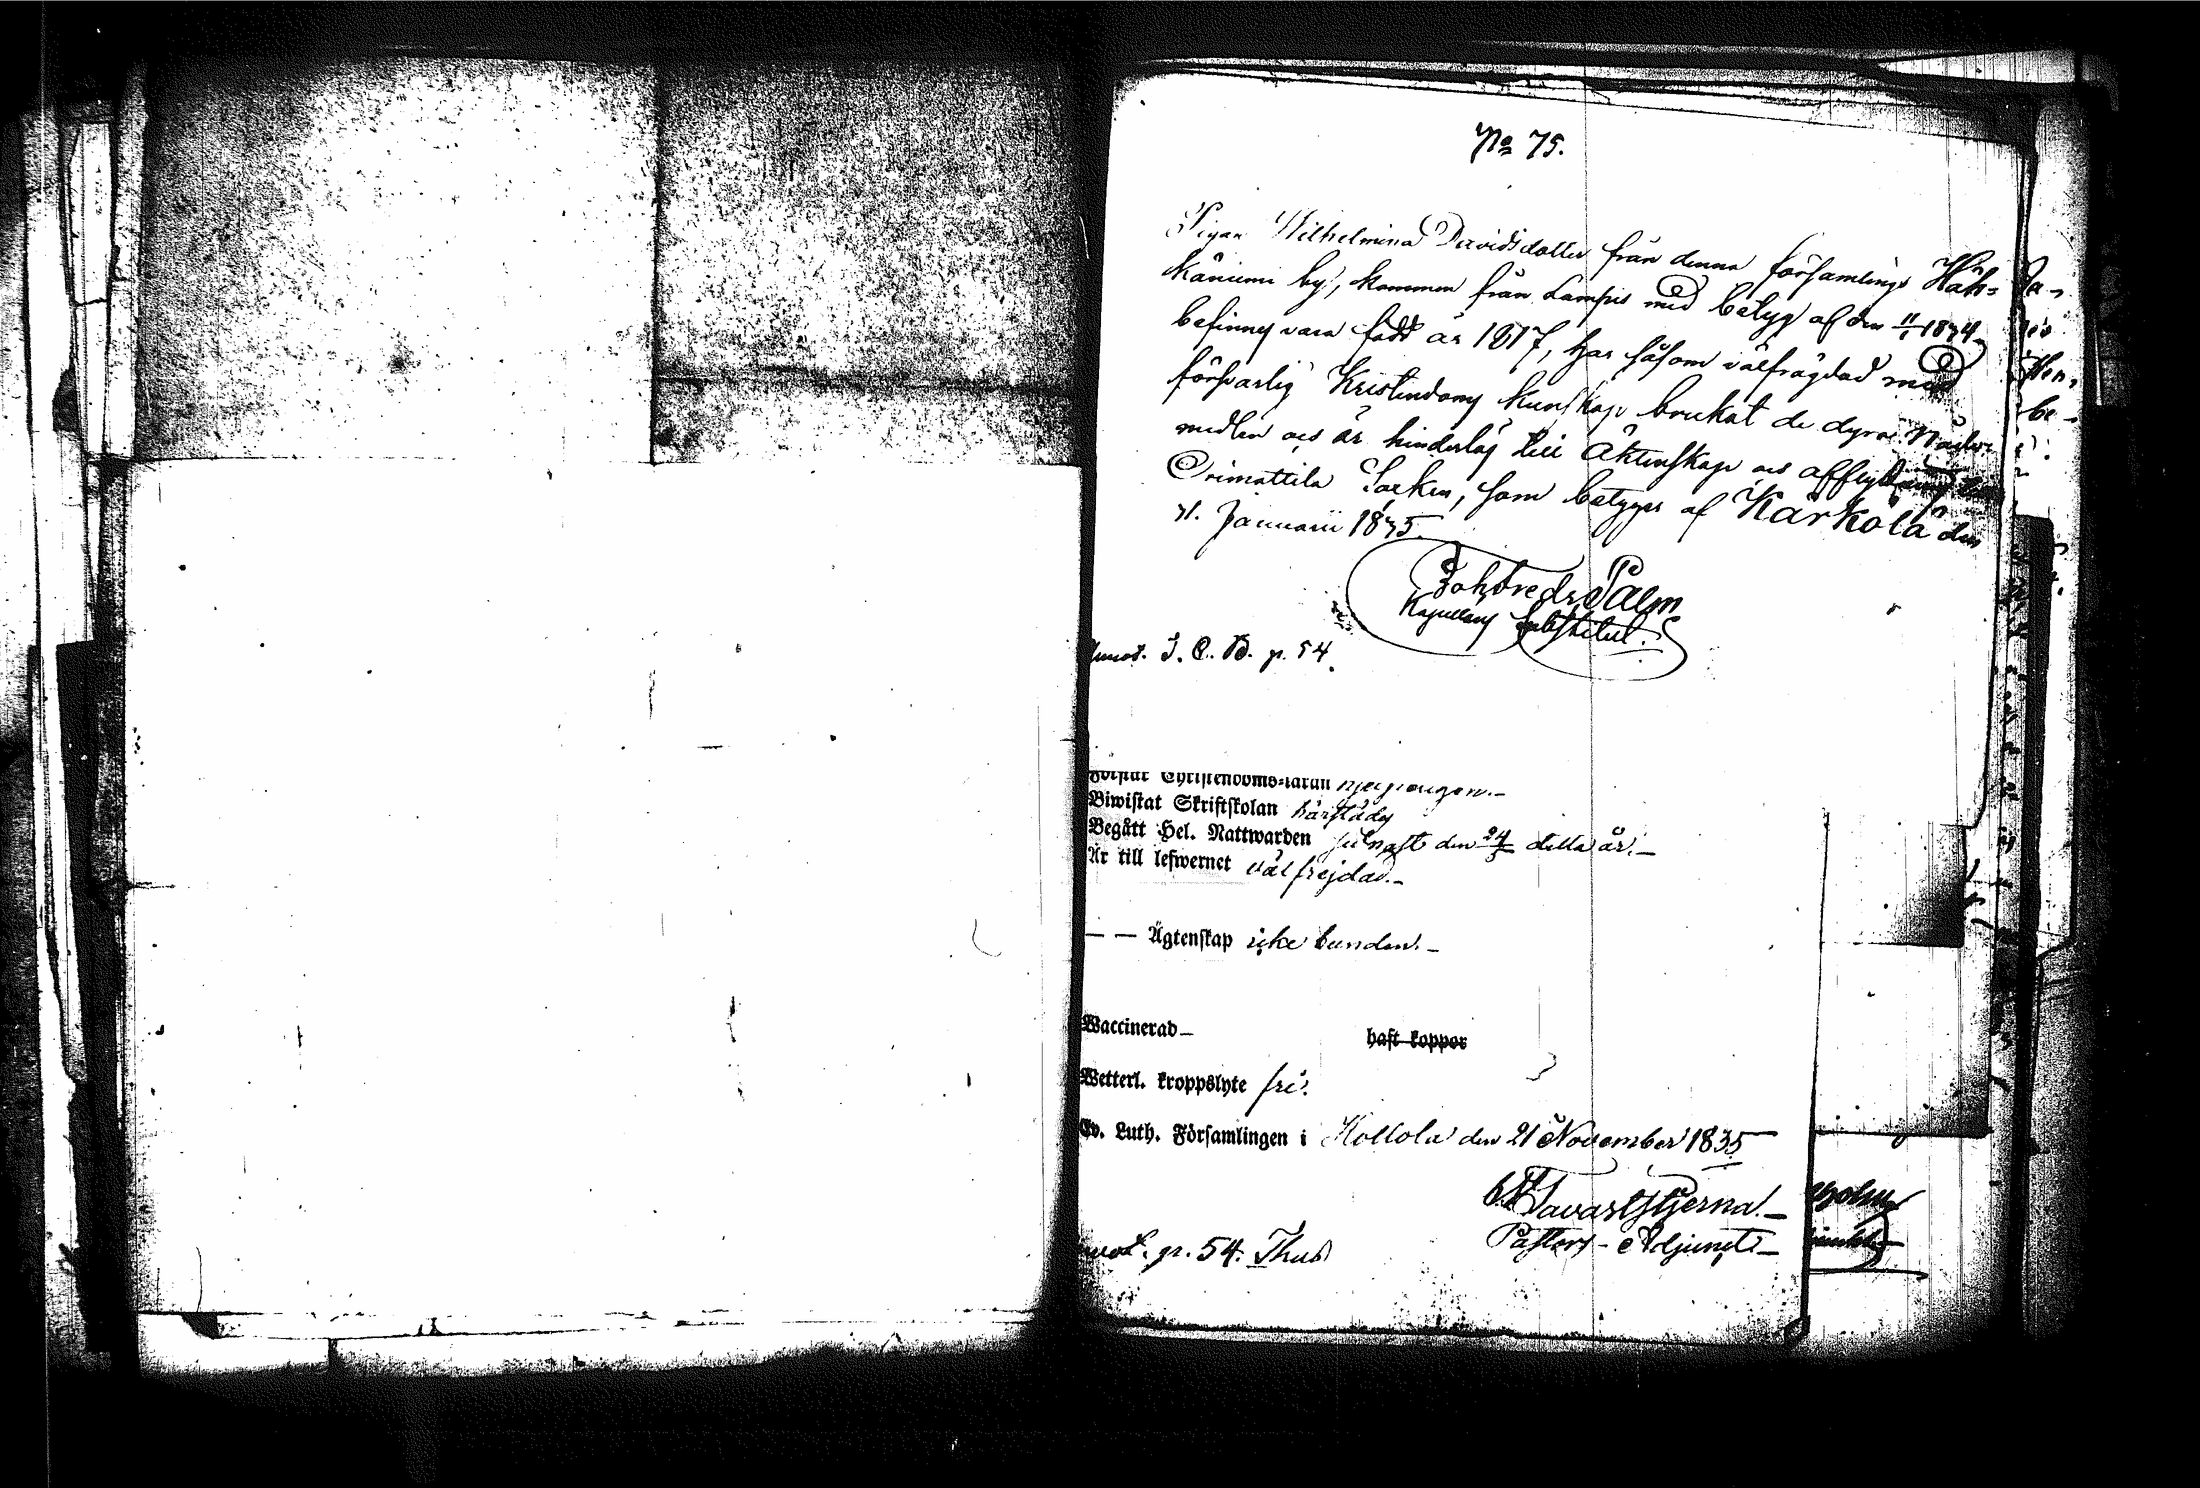 No 75.
Pigan Wilhelmina Davidsdotter från denna församlings Häh=
käniemi by, kommen från Lampis med betyg af den 11/1 1834,
befinnes vara född år 1817, har såsom välfrägdad med
försvarlig Kristendoms kunskap brukat de dyra Nåde
medlen och är hinderlös till Äktenskap och afflyttning
Orimattila Socken, som betygas af Kärkölä den
31. Januarii 1835.
Joh Fredr Palm
Kapellans Substitut.
Annot. I. C. B. p. 54.
Förstår Christendoms-läran
Biwistat Skriftskolan härstädes
Begått Hel. Nattwarden sednast den 24/5 detta år.
Är till lefwernet väl frejdad.
— — Ägtenskap icke bunden.
Vaccinerad haft koppor
Wetterl. kroppslyte fri.
Ev. Luth. Församlingen i Hollola den 21 November 1835
Tavaststjerna.
Pastors-Adjunct
annot. p. 54. Thus